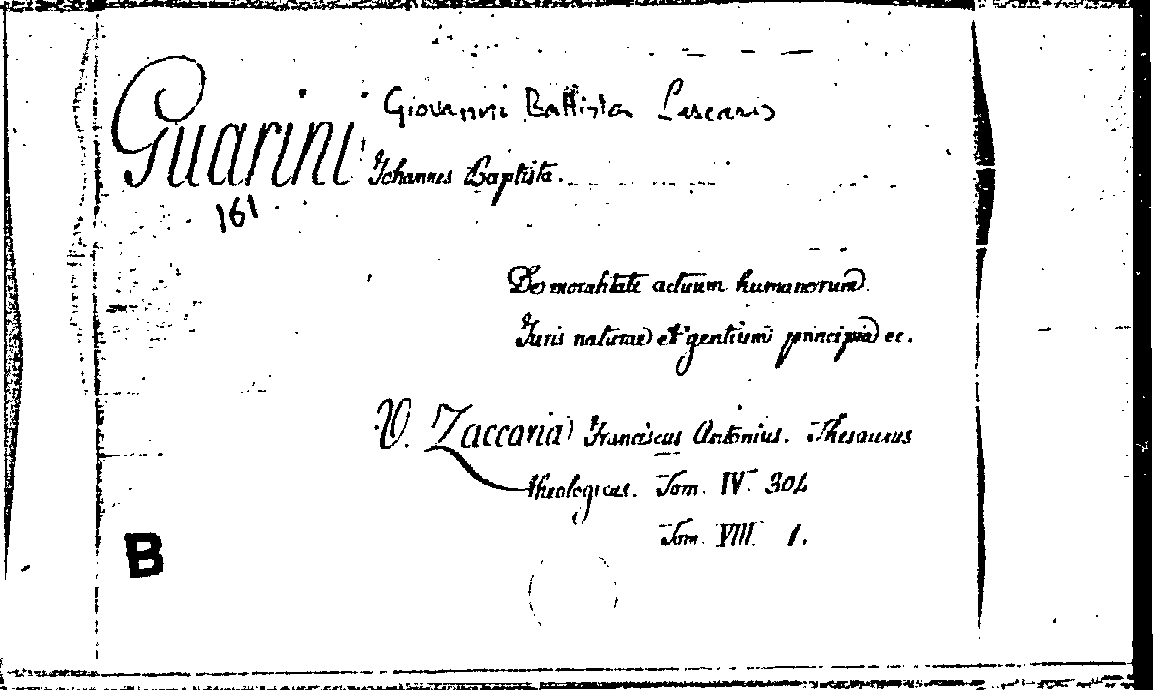 Giovanni Battista Lascaris
Guarini Johannes Baptista.
161
De moralitate actuum humanorum.
Juris naturae et gentium principia ec.
V. Zaccaria Franciscus Antonius. Thesaurus
theologicus. Tom. IV 304
Tom. VIII 1.
B